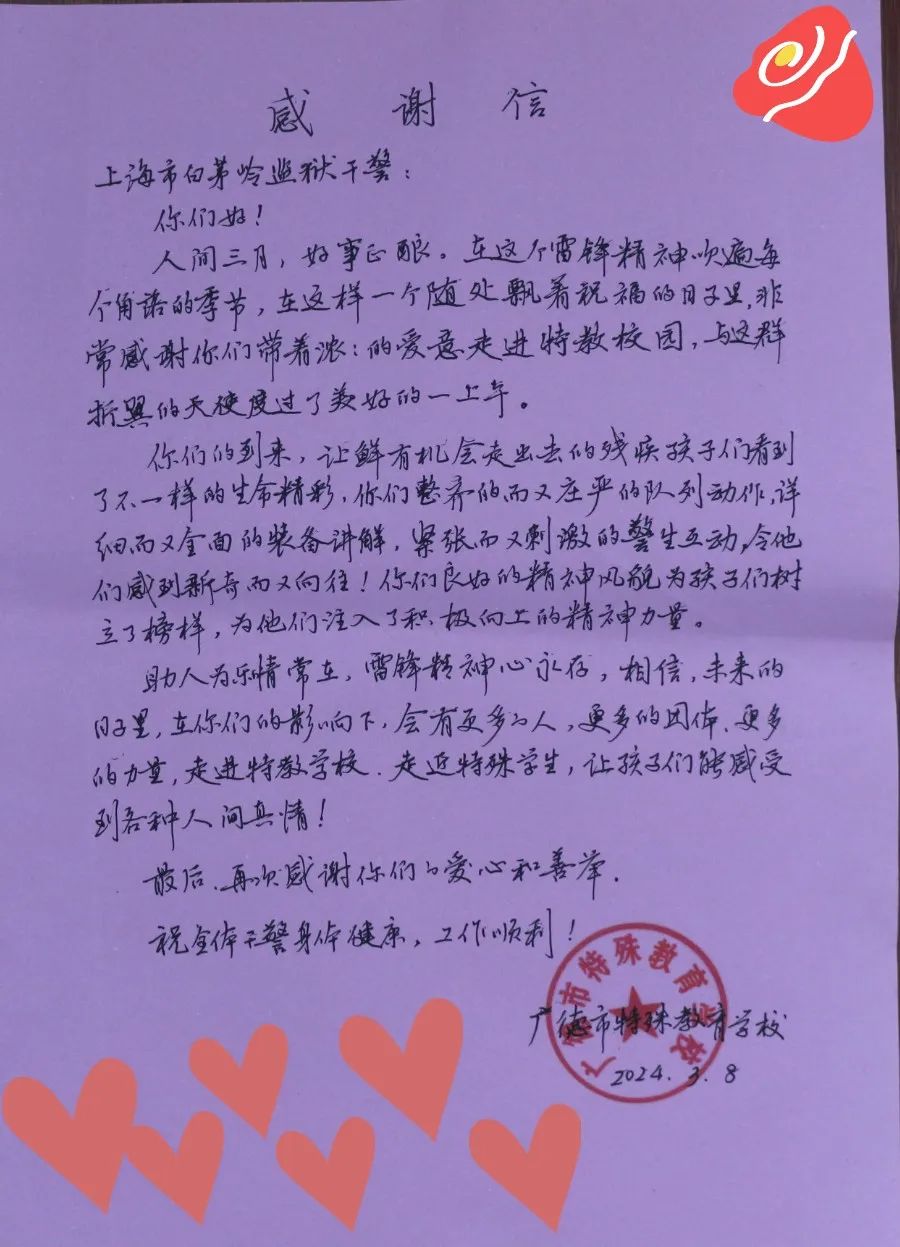 感谢信
上海市白茅岭监狱干警：
你们好！
人间三月，好事正酿。在这个雷锋精神吹遍每
个角落的季节，在这样一个随处飘着祝福的日子里，非
常感谢你们带着浓：的爱意走进特教校园，与这群
折翼的天使度过了美好的一上午。
你们的到来，让鲜有机会走出去的残疾孩子们看到
了不一样的生命精彩，你们整齐的而又庄严的队列动作，详
细而又全面的装备讲解，紧张而又刺激的警生互动，令他
们感到新奇而又向往！你们良好的精神风貌为孩子们树
立了榜样，为他们注入了积极向上的精神力量。
助人为乐情常在，雷锋精神心永存，相信，未来的
日子里，在你们的影响下，会有更多的人，更多的团体、更多
的力量，走进特教学校、走近特殊学生，让孩子们能感受
到各种人间真情！
最后、再次感谢你们的爱心和善举．
祝全体干警身体健康，工作顺利！
广德市特殊教育学校
广德市特殊教育学校
2024.3.8